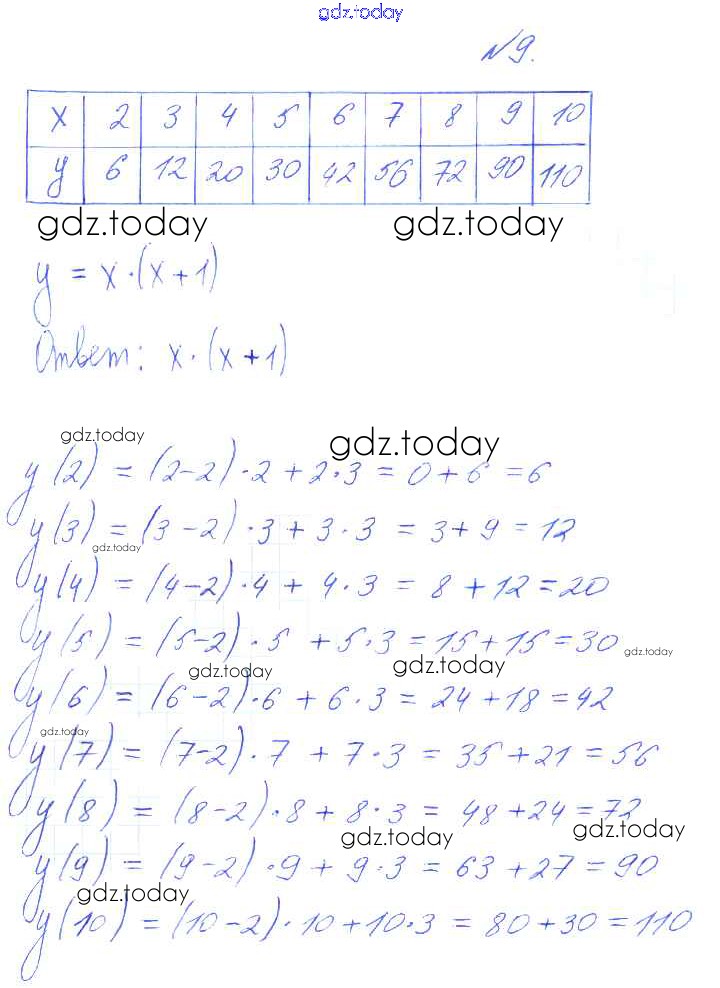 gdz.today
№9.
x 2 3 4 5 6 7 8 9 10
y 6 12 20 30 42 56 72 90 110
gdz.today gdz.today
y = x·(x+1)
Ответ: x·(x+1)
gdz.today gdz.today
y(2) = (2-2)·2+2·3 = 0+6 = 6
y(3) = (3-2)·3+3·3 = 3+9 = 12
gdz.today
y(4) = (4-2)·4+4·3 = 8+12 = 20
y(5) = (5-2)·5+5·3 = 15+15 = 30
gdz.today gdz.today gdz.today
y(6) = (6-2)·6+6·3 = 24+18 = 42
gdz.today
y(7) = (7-2)·7+7·3 = 35+21 = 56
y(8) = (8-2)·8+8·3 = 48+24 = 72
gdz.today gdz.today
y(9) = (9-2)·9+9·3 = 63+27 = 90
gdz.today
y(10) = (10-2)·10+10·3 = 80+30 = 110